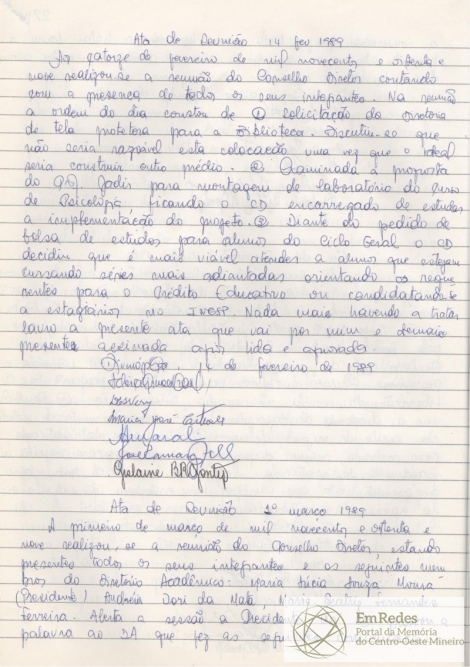 Ata de Reunião 14 fev 1989
Aos catorze de fevereiro de mil novecentos e oitenta e
nove realizou-se a reunião do Conselho Diretor contando
com a presença de todos os seus integrantes. Na reunião
a ordem do dia constou de ① solicitação da diretoria
de tela protetora para a Biblioteca. Discutiu-se que
não seria razoável esta colocação uma vez que o ideal
seria construir outro prédio. ② Examinada a proposta
do Jadir para montagem de laboratório do curso
de Psicologia ficando o CD encarregado de estudos
a implementação do projeto. ③ Diante do pedido de
bolsa de estudos para alunos do Ciclo Geral o CD
decidiu que é mais viável atender a alunos que estejam
cursando séries mais adiantadas orientando os reque
rentes para o Crédito Educativo ou candidatando-se
a estagiários no INESP. Nada mais havendo a tratar
lavro a presente ata que vai por mim e demais
presentes assinada após lida e aprovada.
Divinópolis, 14 de fevereiro de 1989
Maria José
Gislaine
Ata de Reunião 1º março 1989
A primeiro de março de mil novecentos e oitenta e
nove realizou-se a reunião do Conselho Diretor, estando
presentes todos os seus integrantes e os seguintes mem
bros do Diretório Acadêmico: Maria Lúcia Souza
(Presidente) Andreia Dori da Mata, Fernandes
Ferreira. Aberta a sessão a Presidente a
palavra ao DA que fez as
EmRedes
Portal da Memória
do Centro-Oeste Mineiro